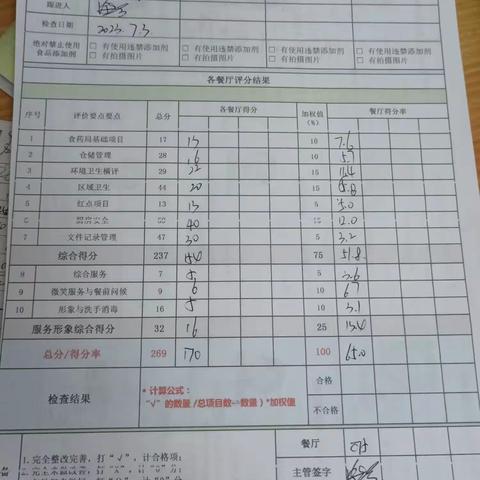 跟进人
检查日期 2023.7.3
绝对禁止使用食品添加剂 □ 有使用违禁添加剂 □ 有使用违禁添加剂 □ 有使用违禁添加剂 □ 有使用违禁添加剂
□ 有拍摄图片 □ 有拍摄图片 □ 有拍摄图片 □ 有拍摄图片
各餐厅评分结果
序号 评价要点要点 总分 各餐厅得分 加权值(%) 餐厅得分率
1 食药局基础项目 17 13 10 7.6
2 仓储管理 28 16 10 5.7
3 环境卫生横评 29 22 15 11.4
4 区域卫生 44 20 15 6.8
5 红点项目 13 13 5 5.0
6 厨房安全 59 40 12.0
7 文件记录管理 47 30 5 3.2
综合得分 237 154 75 51.8
8 综合服务 7 5 5 3.6
9 微笑服务与餐前问候 9 6 10 6.7
10 形象与洗手消毒 16 5 10 3.1
服务形象综合得分 32 16 25 13.4
总分/得分率 269 170 100 65.0
检查结果
* 计算公式:
“√”的数量/总项目数-数量)*加权值
合格
不合格
1.完全整改完善,打“√”,计合格项;
餐厅
主管签字